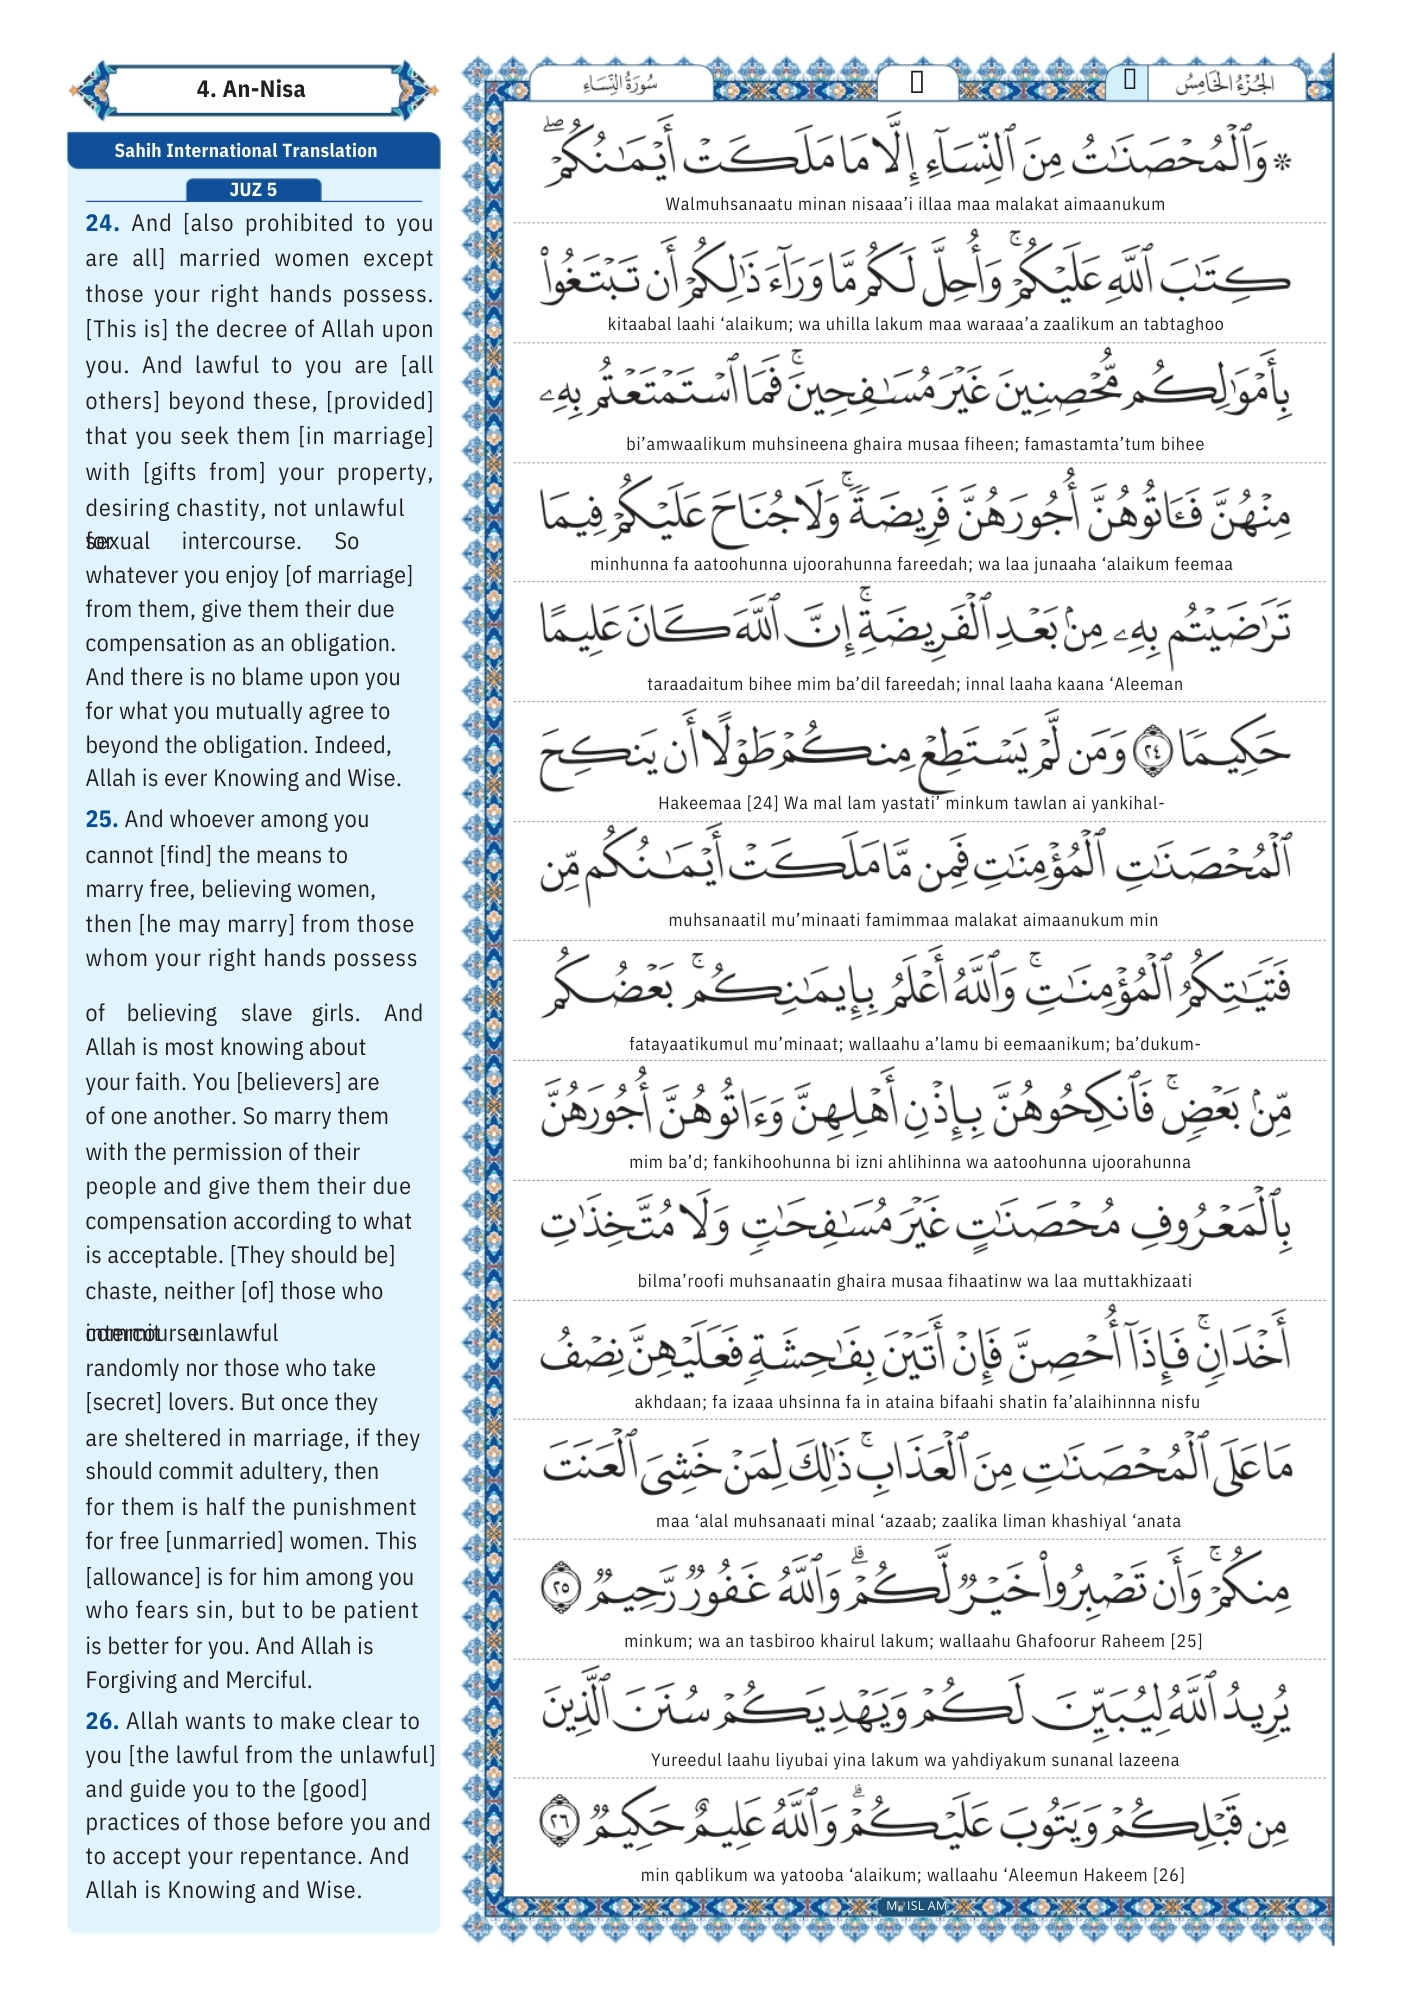 4. An-Nisa
Sahih International Translation
JUZ 5
24. And [also prohibited to you
are all] married women except
those your right hands possess.
[This is] the decree of Allah upon
you. And lawful to you are [all
others] beyond these, [provided]
that you seek them [in marriage]
with [gifts from] your property,
desiring chastity, not unlawful
sexual intercourse. So
whatever you enjoy [of marriage]
from them, give them their due
compensation as an obligation.
And there is no blame upon you
for what you mutually agree to
beyond the obligation. Indeed,
Allah is ever Knowing and Wise.
25. And whoever among you
cannot [find] the means to
marry free, believing women,
then [he may marry] from those
whom your right hands possess
of believing slave girls. And
Allah is most knowing about
your faith. You [believers] are
of one another. So marry them
with the permission of their
people and give them their due
compensation according to what
is acceptable. [They should be]
chaste, neither [of] those who
commit unlawful intercourse
randomly nor those who take
[secret] lovers. But once they
are sheltered in marriage, if they
should commit adultery, then
for them is half the punishment
for free [unmarried] women. This
[allowance] is for him among you
who fears sin, but to be patient
is better for you. And Allah is
Forgiving and Merciful.
26. Allah wants to make clear to
you [the lawful from the unlawful]
and guide you to the [good]
practices of those before you and
to accept your repentance. And
Allah is Knowing and Wise.
سُورَةُ النِّسَاءِ
الجُزْءُ الخَامِسُ
۞ وَٱلْمُحْصَنَٰتُ مِنَ ٱلنِّسَآءِ إِلَّا مَا مَلَكَتْ أَيْمَٰنُكُمْ ۖ
Walmuhsanaatu minan nisaaa’i illaa maa malakat aimaanukum
كِتَٰبَ ٱللَّهِ عَلَيْكُمْ ۚ وَأُحِلَّ لَكُم مَّا وَرَآءَ ذَٰلِكُمْ أَن تَبْتَغُوا۟
kitaabal laahi ‘alaikum; wa uhilla lakum maa waraaa’a zaalikum an tabtaghoo
بِأَمْوَٰلِكُم مُّحْصِنِينَ غَيْرَ مُسَٰفِحِينَ ۚ فَمَا ٱسْتَمْتَعْتُم بِهِۦ
bi’amwaalikum muhsineena ghaira musaa fiheen; famastamta’tum bihee
مِنْهُنَّ فَـَٔاتُوهُنَّ أُجُورَهُنَّ فَرِيضَةً ۚ وَلَا جُنَاحَ عَلَيْكُمْ فِيمَا
minhunna fa aatoohunna ujoorahunna fareedah; wa laa junaaha ‘alaikum feemaa
تَرَٰضَيْتُم بِهِۦ مِنۢ بَعْدِ ٱلْفَرِيضَةِ ۚ إِنَّ ٱللَّهَ كَانَ عَلِيمًا
taraadaitum bihee mim ba’dil fareedah; innal laaha kaana ‘Aleeman
حَكِيمًا ٢٤ وَمَن لَّمْ يَسْتَطِعْ مِنكُمْ طَوْلًا أَن يَنكِحَ
Hakeemaa [24] Wa mal lam yastati’ minkum tawlan ai yankihal-
ٱلْمُحْصَنَٰتِ ٱلْمُؤْمِنَٰتِ فَمِن مَّا مَلَكَتْ أَيْمَٰنُكُم مِّن
muhsanaatil mu’minaati famimmaa malakat aimaanukum min
فَتَيَٰتِكُمُ ٱلْمُؤْمِنَٰتِ ۚ وَٱللَّهُ أَعْلَمُ بِإِيمَٰنِكُم ۚ بَعْضُكُم
fatayaatikumul mu’minaat; wallaahu a’lamu bi eemaanikum; ba’dukum-
مِّنۢ بَعْضٍ ۚ فَٱنكِحُوهُنَّ بِإِذْنِ أَهْلِهِنَّ وَءَاتُوهُنَّ أُجُورَهُنَّ
mim ba’d; fankihoohunna bi izni ahlihinna wa aatoohunna ujoorahunna
بِٱلْمَعْرُوفِ مُحْصَنَٰتٍ غَيْرَ مُسَٰفِحَٰتٍ وَلَا مُتَّخِذَٰتِ
bilma’roofi muhsanaatin ghaira musaa fihaatinw wa laa muttakhizaati
أَخْدَانٍ ۚ فَإِذَآ أُحْصِنَّ فَإِنْ أَتَيْنَ بِفَٰحِشَةٍ فَعَلَيْهِنَّ نِصْفُ
akhdaan; fa izaaa uhsinna fa in ataina bifaahi shatin fa’alaihinnna nisfu
مَا عَلَى ٱلْمُحْصَنَٰتِ مِنَ ٱلْعَذَابِ ۚ ذَٰلِكَ لِمَنْ خَشِىَ ٱلْعَنَتَ
maa ‘alal muhsanaati minal ‘azaab; zaalika liman khashiyal ‘anata
مِنكُمْ ۚ وَأَن تَصْبِرُوا۟ خَيْرٌ لَّكُمْ ۗ وَٱللَّهُ غَفُورٌ رَّحِيمٌ ٢٥
minkum; wa an tasbiroo khairul lakum; wallaahu Ghafoorur Raheem [25]
يُرِيدُ ٱللَّهُ لِيُبَيِّنَ لَكُمْ وَيَهْدِيَكُمْ سُنَنَ ٱلَّذِينَ
Yureedul laahu liyubai yina lakum wa yahdiyakum sunanal lazeena
مِن قَبْلِكُمْ وَيَتُوبَ عَلَيْكُمْ ۗ وَٱللَّهُ عَلِيمٌ حَكِيمٌ ٢٦
min qablikum wa yatooba ‘alaikum; wallaahu ‘Aleemun Hakeem [26]